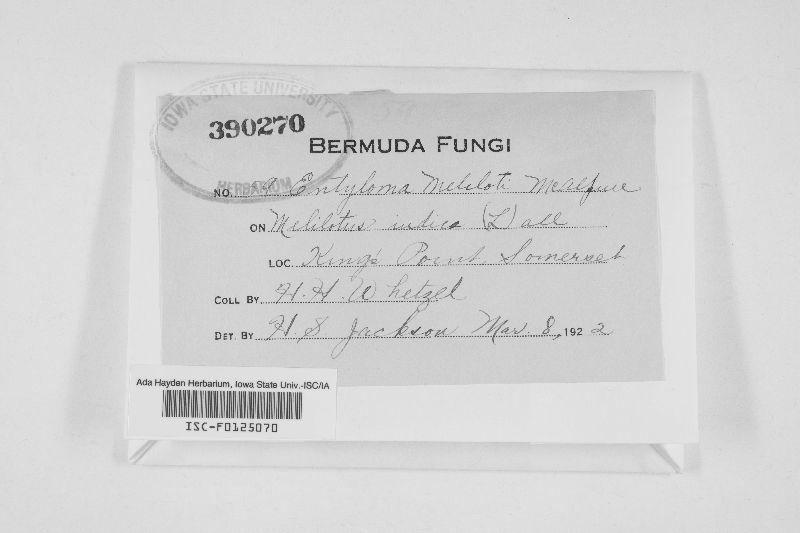 IOWA STATE UNIVERSITY
390270
HERBARIUM
BERMUDA FUNGI
NO. Entyloma Meliloti McAlpine
ON Melilotus indica (L) All
LOC King's Point Somerset
COLL BY H. H. Whetzel
DET. BY H. S. Jackson Mar. 8, 1922
Ada Hayden Herbarium, Iowa State Univ.-ISC/IA
ISC-F0125070